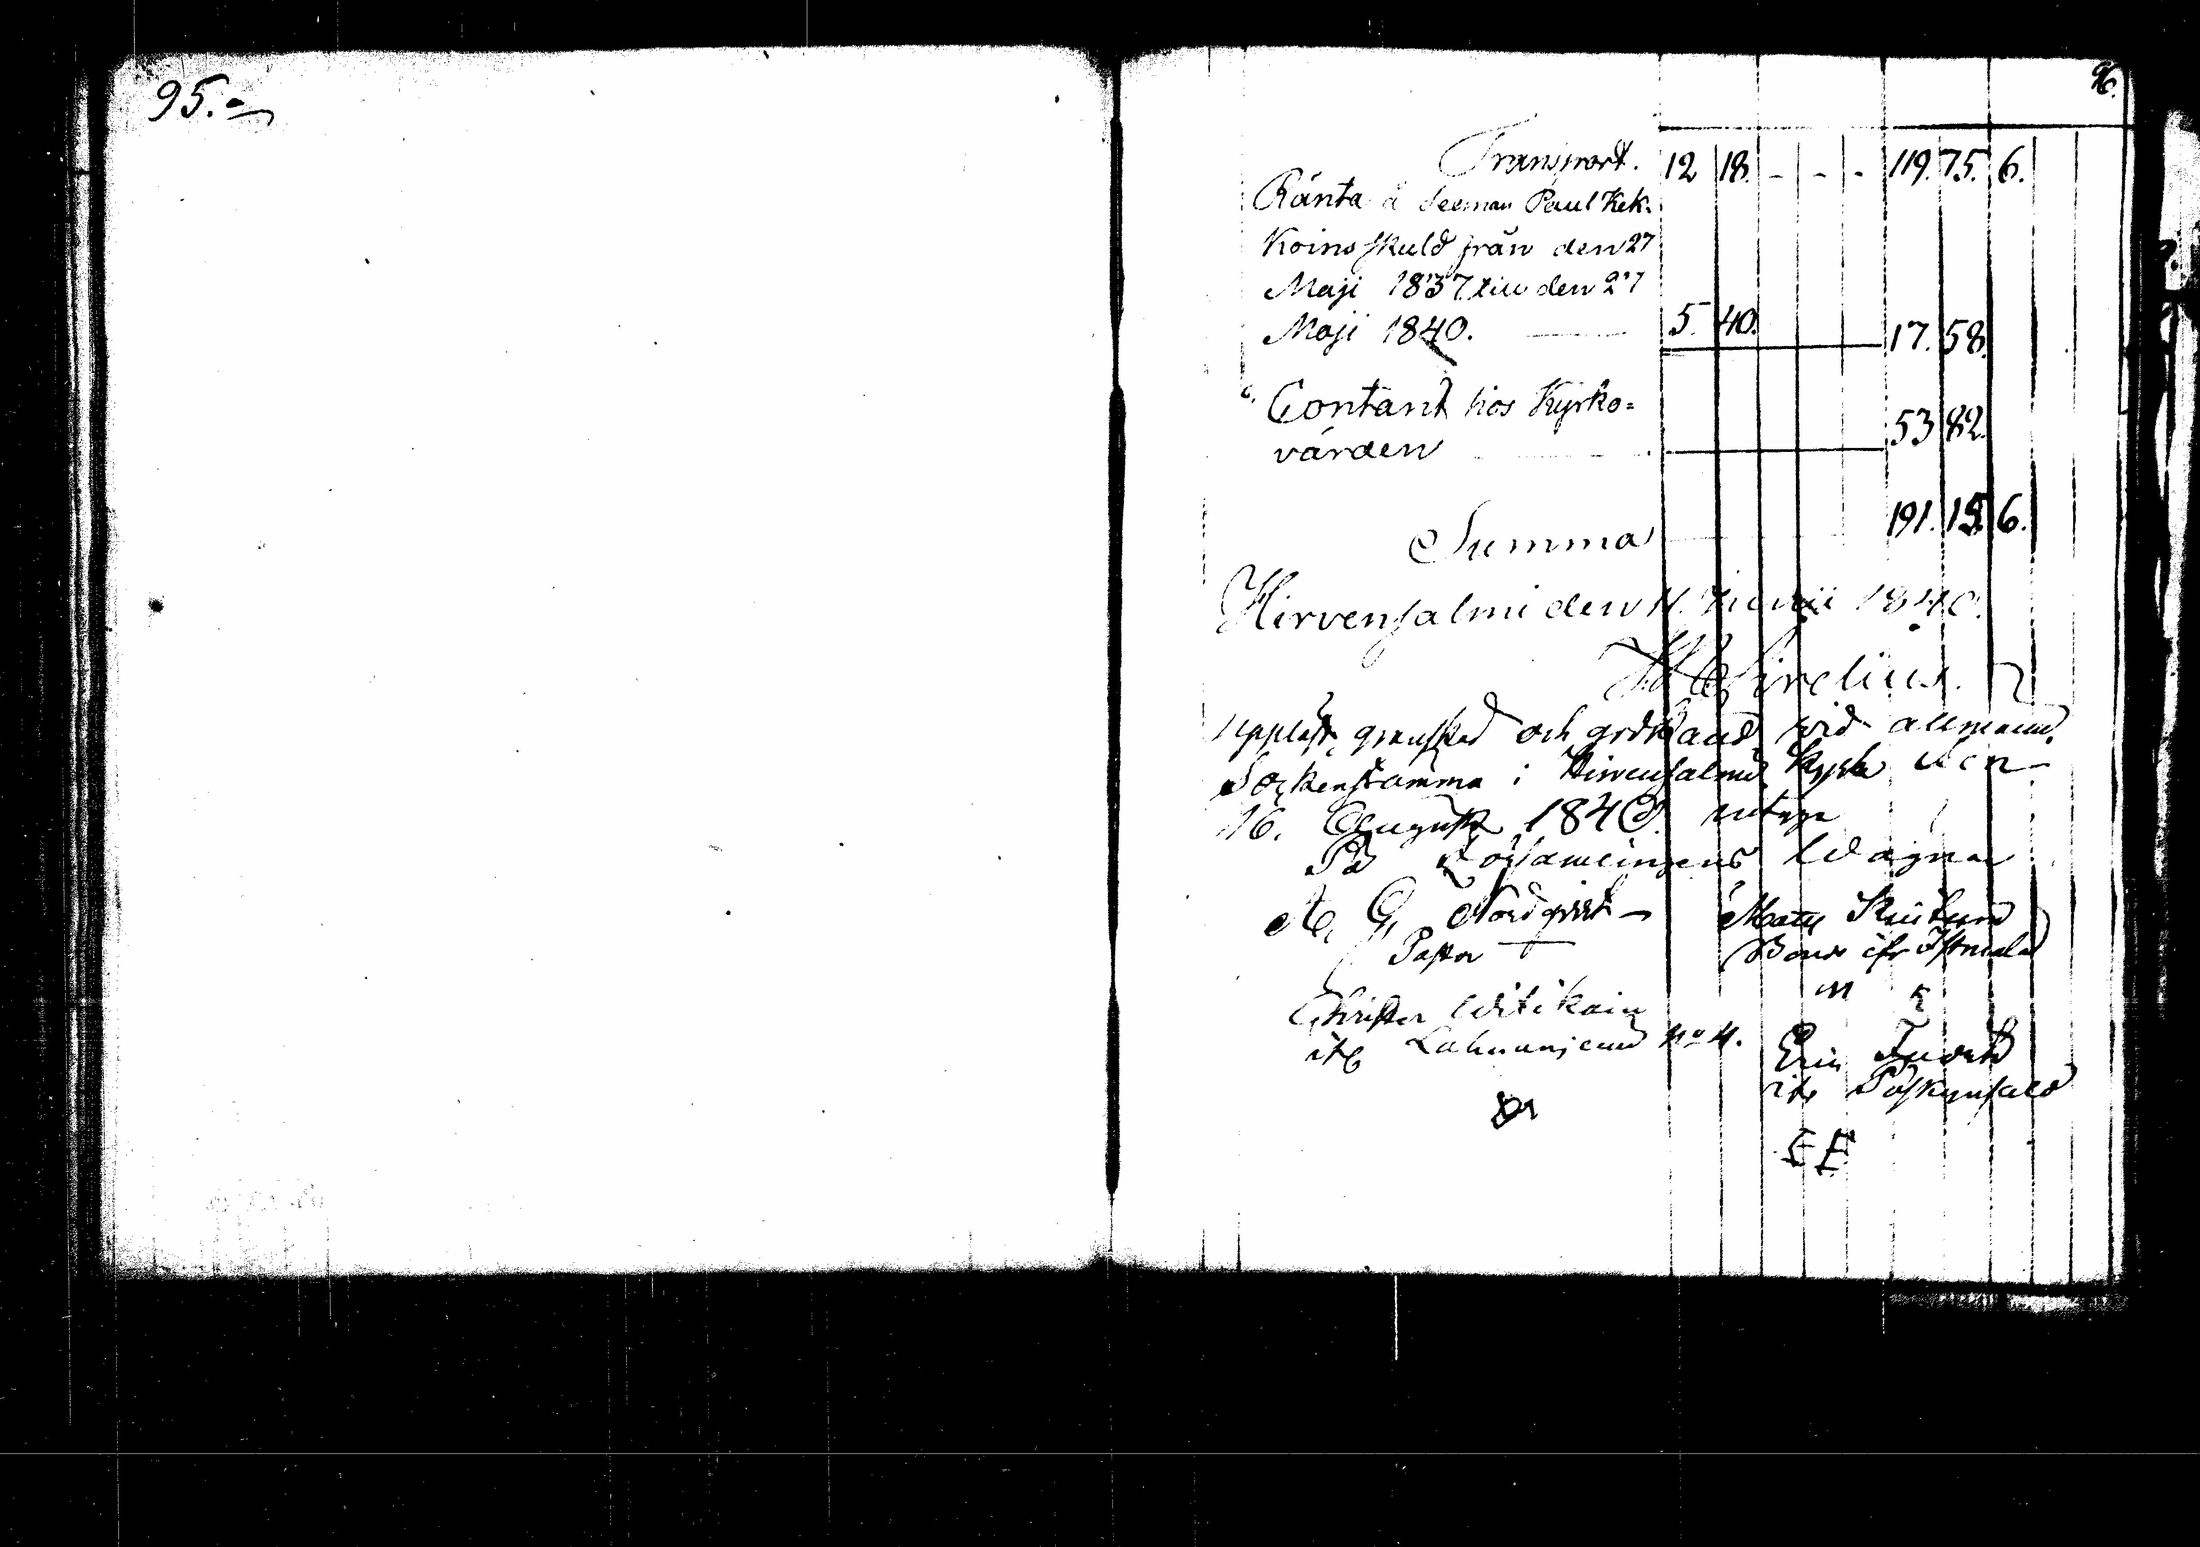 95.
96.
Transport. 12 18. - - - 119. 75. 6.
Ränta å Leeman Paul Kek-
koins skuld från den 27
Maji 1837 till den 27
Maji 1840. 5. 40. 17. 58.
Contant hos Kyrko=
värden 53 82.
Summa 191. 15. 6.
Hirvensalmi den 11. Junii 1840.
Sirelius.
Uppläst, granskad och godkänd wid allmänn
Sockenstämma i Hirvensalmi Kyrka den
16. August 1840. intyga
På Församlingens Wägnar
A. G. Nordqvist
Pastor
Matts
Bonde ifr
Christer Witikain
ifr No 4.
Eric
ifr
E E